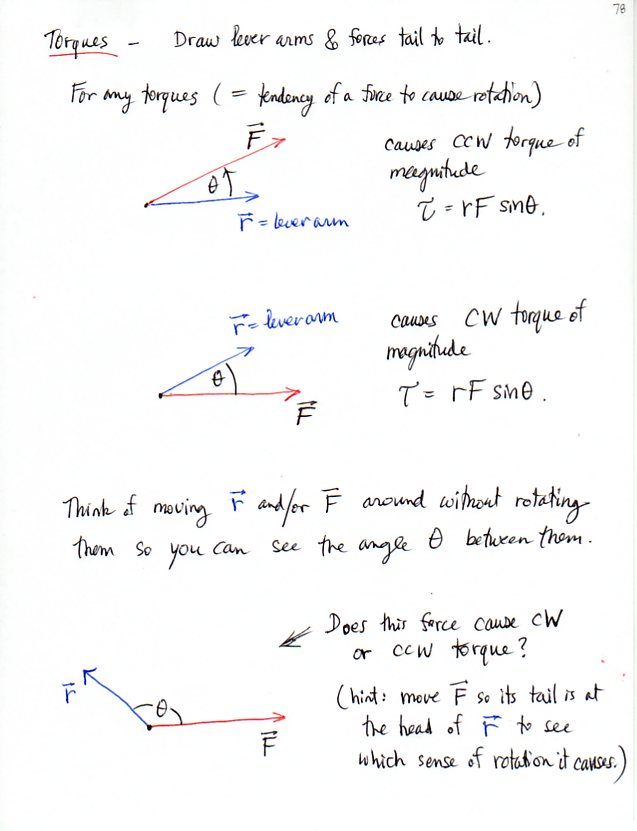 78
Torques - Draw lever arms & forces tail to tail.
For any torques ( = tendency of a force to cause rotation)
F
θ
r = lever arm
causes CCW torque of
meagnitude
τ = rF sinθ.
r = lever arm
θ
F
causes CW torque of
magnitude
τ = rF sinθ.
Think of moving r and/or F around without rotating
them so you can see the angle θ between them.
Does this force cause CW
or CCW torque?
r
θ
F
(hint: move F so its tail is at
the head of r to see
which sense of rotation it causes.)